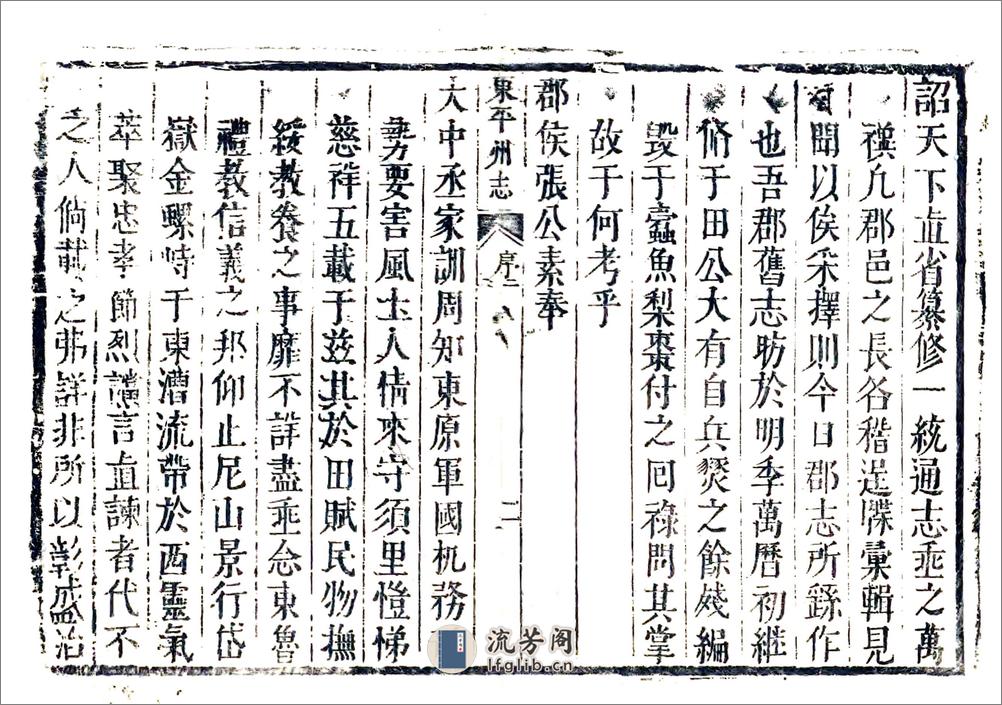 詔天下直省纂修一統通志垂之萬
禩凡郡邑之長各稽逞隟彙輯見
聞以俟采擇則今日郡志所繇作
也吾郡舊志昉於明季萬曆初繼
脩于田公大有自兵燹之餘殘編
毀于蠹魚梨棗付之回祿問其掌
故于何考乎
郡侯張公素奉
東平州志 序 二
大中丞家訓周知東原軍國机務
要害風土人情來守須里愷悌
慈祥五載于茲其於田賦民物撫
綏教養之事靡不詳盡垂念東魯
禮教信義之邦仰止尼山景行岱
嶽金螺峙于東漕流帶於西靈氣
萃聚忠孝節烈讜言直諫者代不
之人倘載之弗詳非所以彰盛治
流芳阁
lfglib.cn